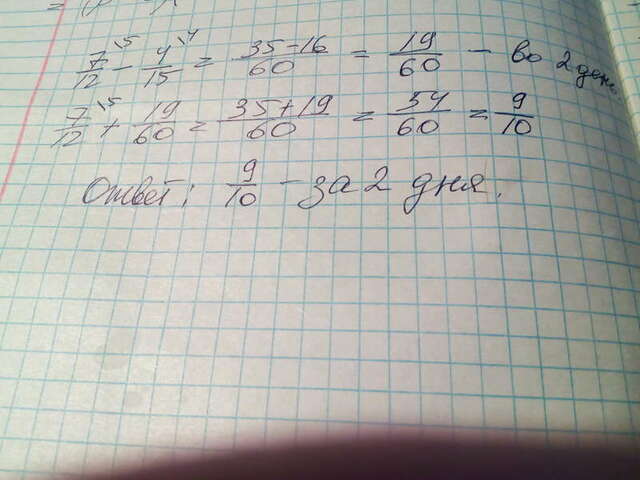 7/12 \5 - 4/15 \4 = 35-16/60 = 19/60 - во 2 день
7/12 \5 + 19/60 = 35+19/60 = 54/60 = 9/10
Ответ: 9/10 - за 2 дня.